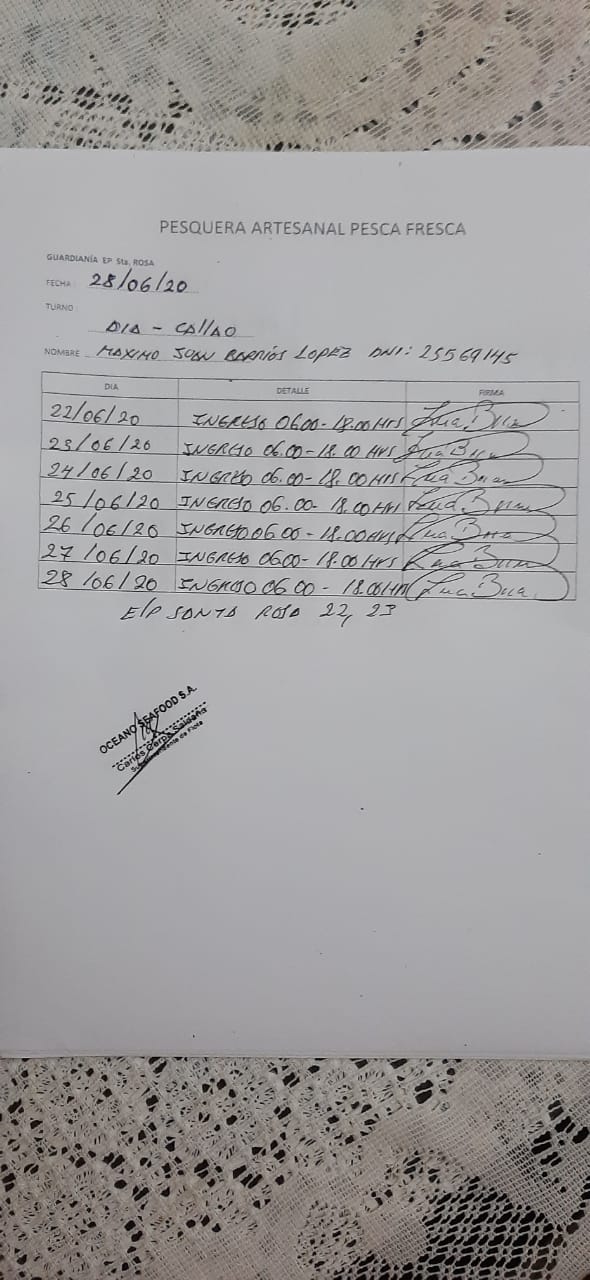 PESQUERA ARTESANAL PESCA FRESCA
GUARDIANÍA EP Sta. ROSA
FECHA: 28/06/20
TURNO:
DIA - CALLAO
NOMBRE MAXIMO JUAN BARRIOS LOPEZ DNI: 25569145
DIA DETALLE FIRMA
22/06/20 INGRESO 06.00 - 18.00 Hrs
23/06/20 INGRESO 06.00 - 18.00 Hrs
24/06/20 INGRESO 06.00 - 18.00 Hrs
25/06/20 INGRESO 06.00 - 18.00 Hrs
26/06/20 INGRESO 06.00 - 18.00 Hrs
27/06/20 INGRESO 06.00 - 18.00 Hrs
28/06/20 INGRESO 06.00 - 18.00 Hrs
E/P SANTA ROSA 22, 23
OCEANO SEAFOOD S.A.
Carlos Carpa Saldaña
Superintendente de Flota